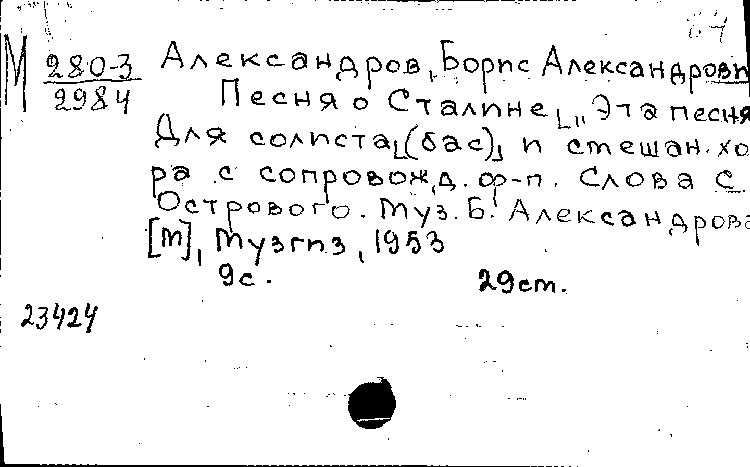 64
М 280-3
2984
Александров, Борис Александрови
Песня о Сталине. „Эта песня
Для солиста (бас) и смешан. хо
ра с сопровожд. ф-п. Слова С.
Острового. Муз. Б. Александрова
[М], Музгиз, 1953
9с. 29ст.
23424